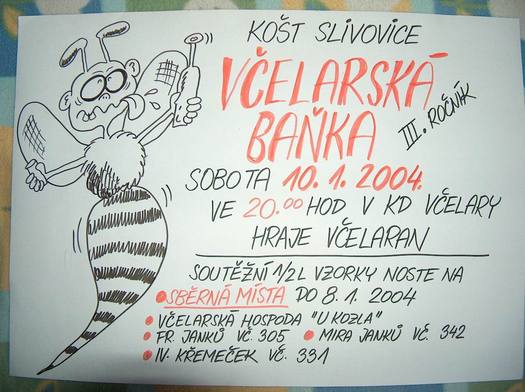 KOŠT SLIVOVICE
VČELARSKÁ
BAŇKA
III. ROČNÍK
SOBOTA 10.1.2004.
VE 20.00 HOD V KD VČELARY
HRAJE VČELARAN
SOUTĚŽNÍ 1/2L VZORKY NOSTE NA
SBĚRNÁ MÍSTA DO 8.1.2004
VČELARSKÁ HOSPODA "U KOZLA"
FR. JANKŮ VČ.305 MIRA JANKŮ VČ. 342
IV. KŘEMEČEK VČ. 331